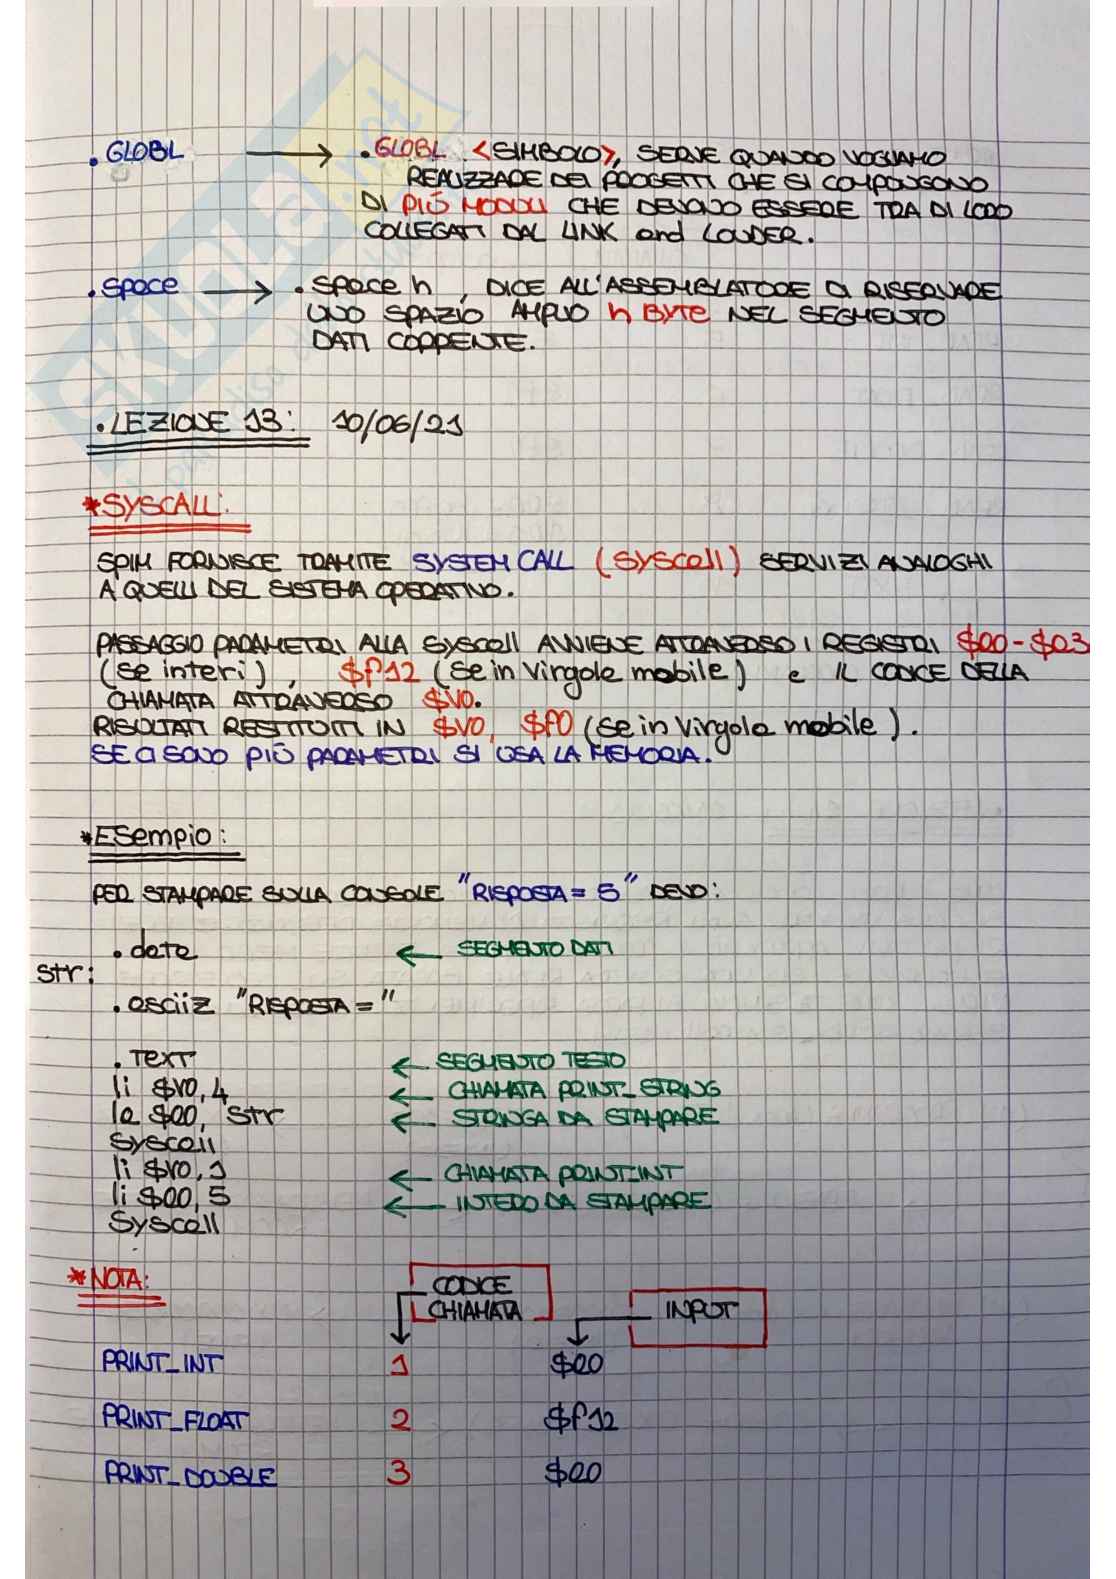 .GLOBL → .GLOBL <SIMBOLO>, SERVE QUANDO VOGLIAMO
REALIZZARE DEI PROGETTI CHE SI COMPONGONO
DI PIÚ MODULI CHE DEVONO ESSERE TRA DI LORO
COLLEGATI DAL LINK and LOUDER.
.space → .space n, DICE ALL'ASSEMBLATORE DI RISERVARE
UNO SPAZIO AMPIO n BYTE NEL SEGMENTO
DATI CORRENTE.
.LEZIONE 13: 10/06/21
*SYSCALL:
SPIM FORNISCE TRAMITE SYSTEM CALL (syscall) SERVIZI ANALOGHI
A QUELLI DEL SISTEMA OPERATIVO.
PASSAGGIO PARAMETRI ALLA syscall AVVIENE ATTRAVERSO I REGISTRI $a0-$a3
(se interi), $f12 (se in virgola mobile) e IL CODICE DELLA
CHIAMATA ATTRAVERSO $v0.
RISULTATI RESTITUITI IN $v0, $f0 (se in virgola mobile).
SE CI SONO PIÚ PARAMETRI SI USA LA MEMORIA.
*Esempio:
PER STAMPARE SULLA CONSOLE "RISPOSTA = 5" DEVO:
.data ← SEGMENTO DATI
str:
.asciiz "RISPOSTA = "
.TEXT ← SEGMENTO TESTO
li $v0,4 ← CHIAMATA PRINT_STRING
la $a0, str ← STRINGA DA STAMPARE
syscall
li $v0,1 ← CHIAMATA PRINT_INT
li $a0,5 ← INTERO DA STAMPARE
syscall
*NOTA:
CODICE
CHIAMATA INPUT
PRINT_INT 1 $a0
PRINT_FLOAT 2 $f12
PRINT_DOUBLE 3 $a0
SKUOLA.net